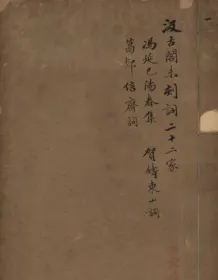 汲古閣未刻詞二十二家
馮延巳陽春集 賀鑄東山詞
葛郯信齋詞